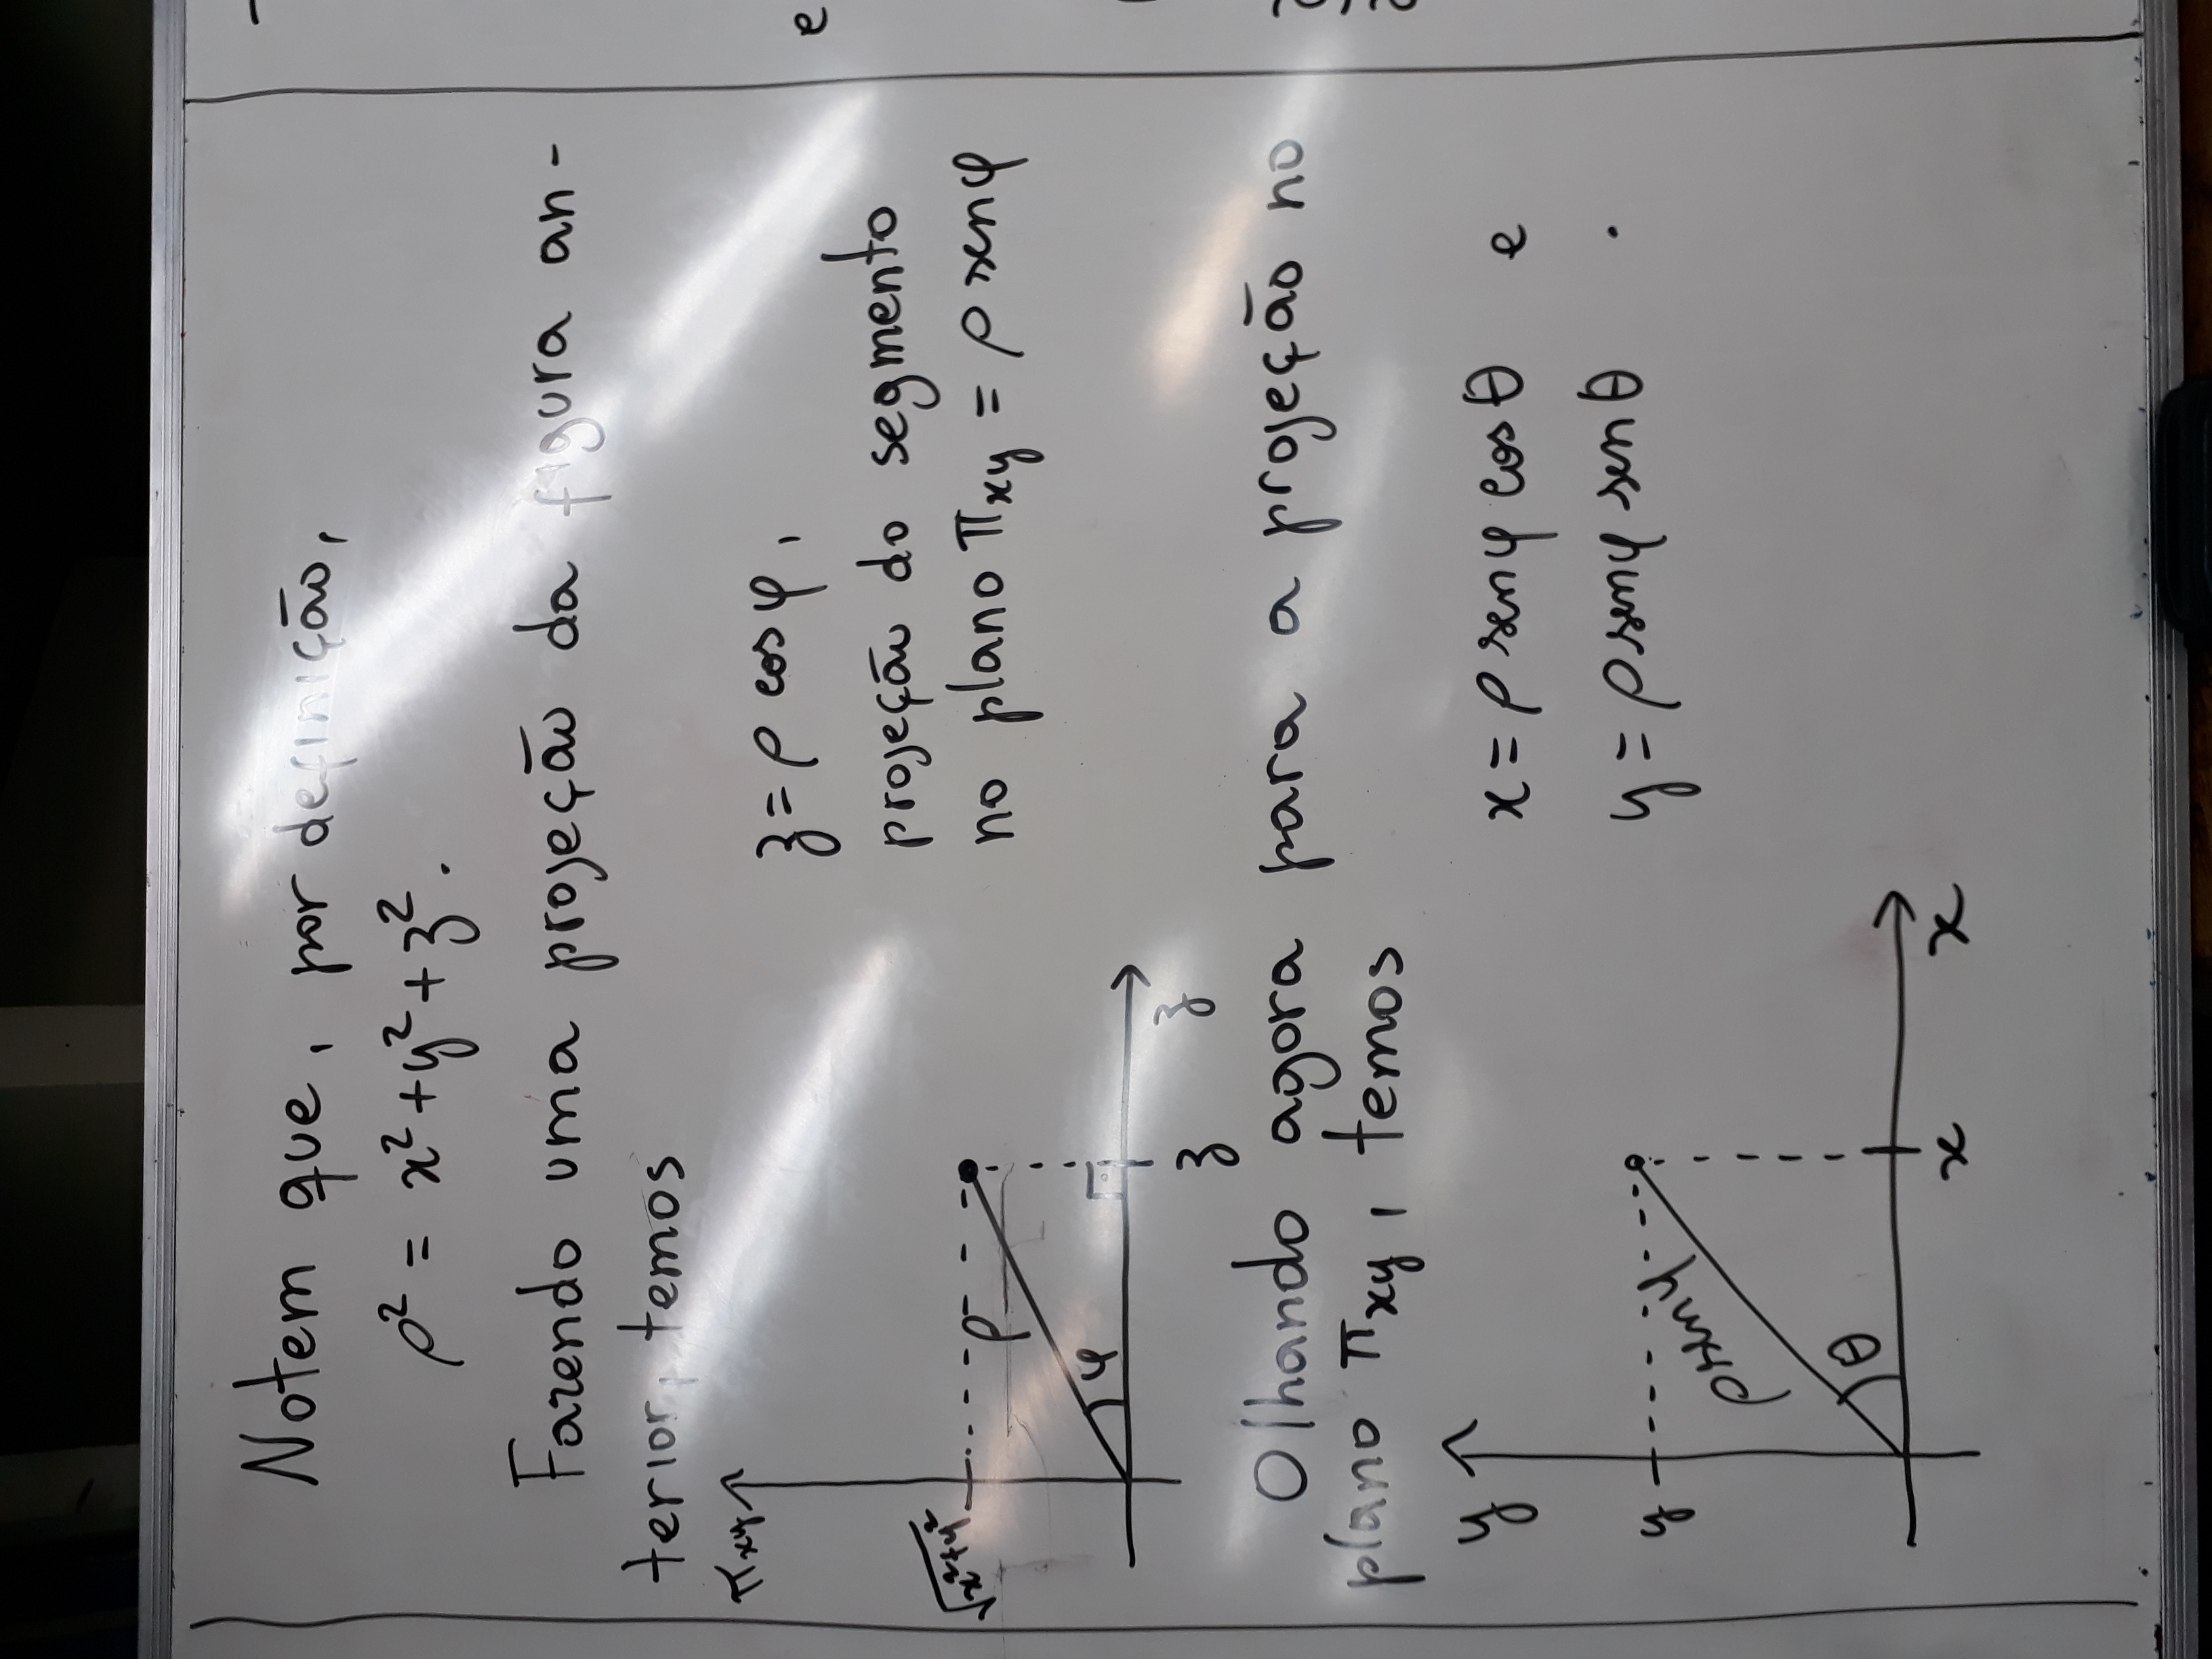 Notem que, por definição,
ρ² = x² + y² + z².
Fazendo uma projeção da figura an-
terior, temos
π_xy
√(x²+y²)
ρ
φ
z
z
z = ρ cos φ,
projeção do segmento
no plano π_xy = ρ sen φ
Olhando agora para a projeção no
plano π_xy, temos
y
y
ρ sen φ
θ
x
x
x = ρ sen φ cos θ e
y = ρ sen φ sen θ .
e